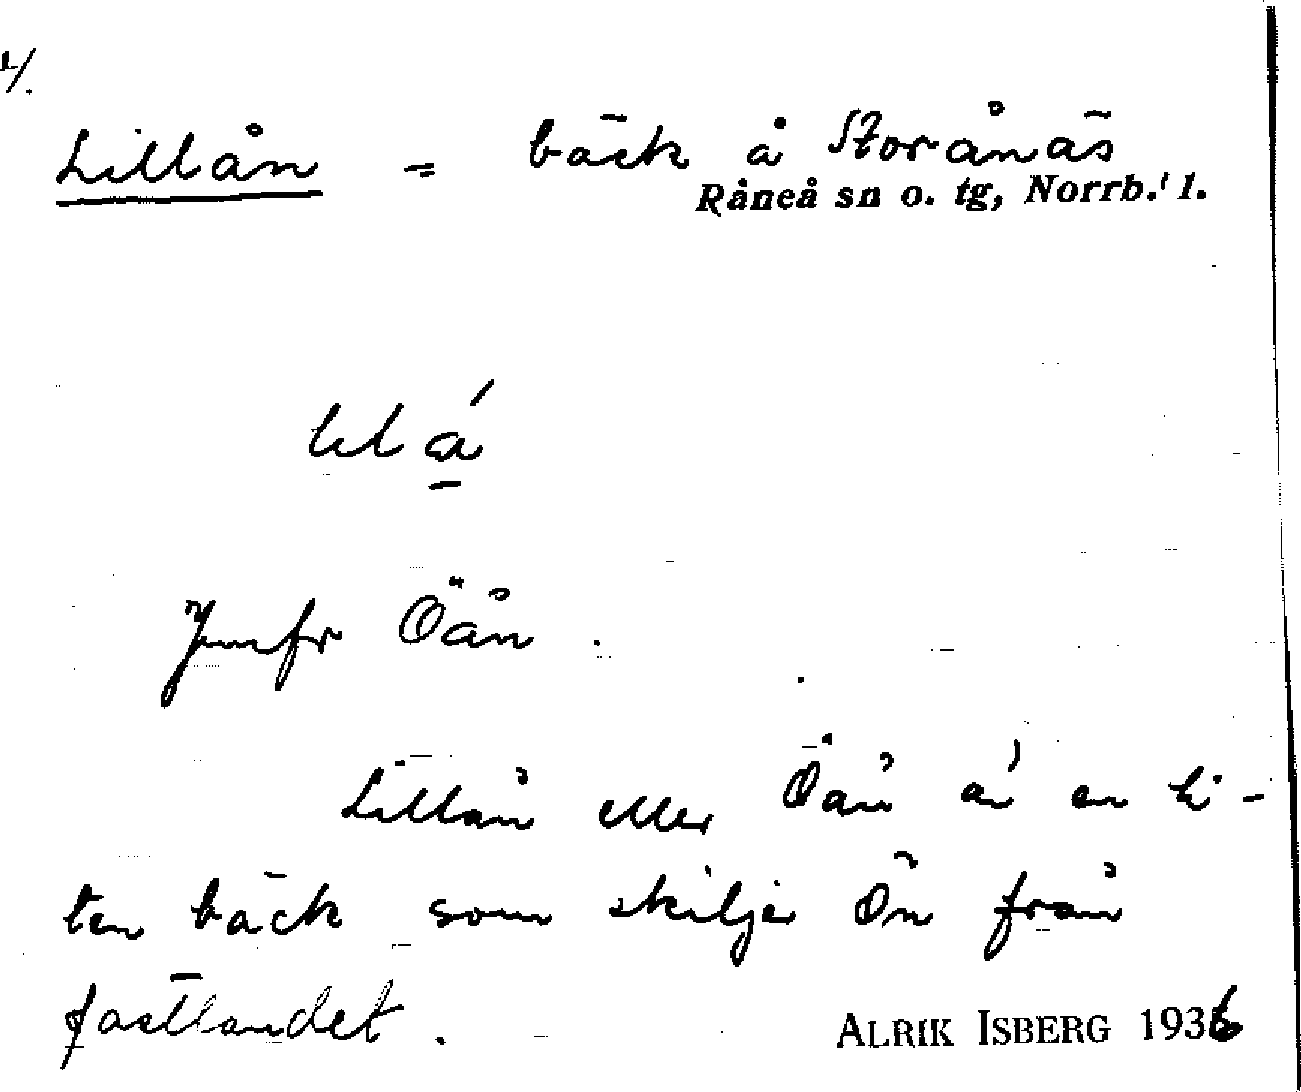 1/.
Lillån = bäck å Storånäs
Råneå sn o. tg, Norrb. l.
Jmfr Öån.
Lillån eller Öån är en li-
ten bäck som skiljer Ön från
fastlandet.
ALRIK ISBERG 1936